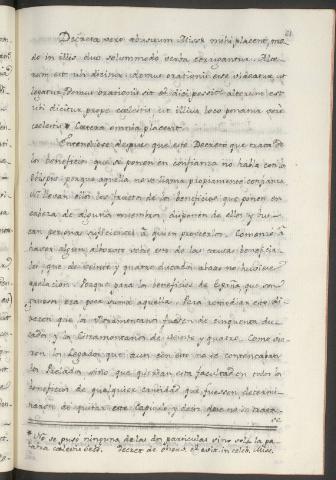 Decreta vero abusuum Missæ mihi placent, mo
do in illis duo solummodo verba corrigantur. Alte
rum est ut dicitur domus orationis esse videatur, ut
legatur Domus orationis sit et dici possit: alterum est
ut dicitur prope cœlestis ut illius loco ponatur vere
cœlestis * Cætera omnia placent.
Entendiose despues que este Decreto que trata de
los beneficios que se ponen en confianza no habla con los
Obispos, porque aquella no se llama propiamente confianza
ni llevan ellos los frutos de los beneficios que ponen en
cabeza de alguna muerto disponen de ellos y bus
can personas suficientes á quien proveerlos. Comenzó á
haver algun alboroto sobre esto de las causas beneficia
les que de veinte y quatro ducados abajo no hubiese
apelacion porque para los beneficios de España que
fuesen era poca suma aquella. Para remediar esto di
xeron que los Ultramontanos fuesen de cinquenta duca
dos y los Citramontanos de veinte y quatro. Como vie
ron los Legados que aun con esto no se contentaban
los Prelados sino que querian esta facultad en todos los
beneficios de qualquier cantidad que fuesen determi
naron de quitar este Capitulo y decir que no se tratase
* No se puso ninguna de las dos particulas sino sola la pa
labra cœlesti Deo. Decret. de observ. et evit. in celeb. Miss.